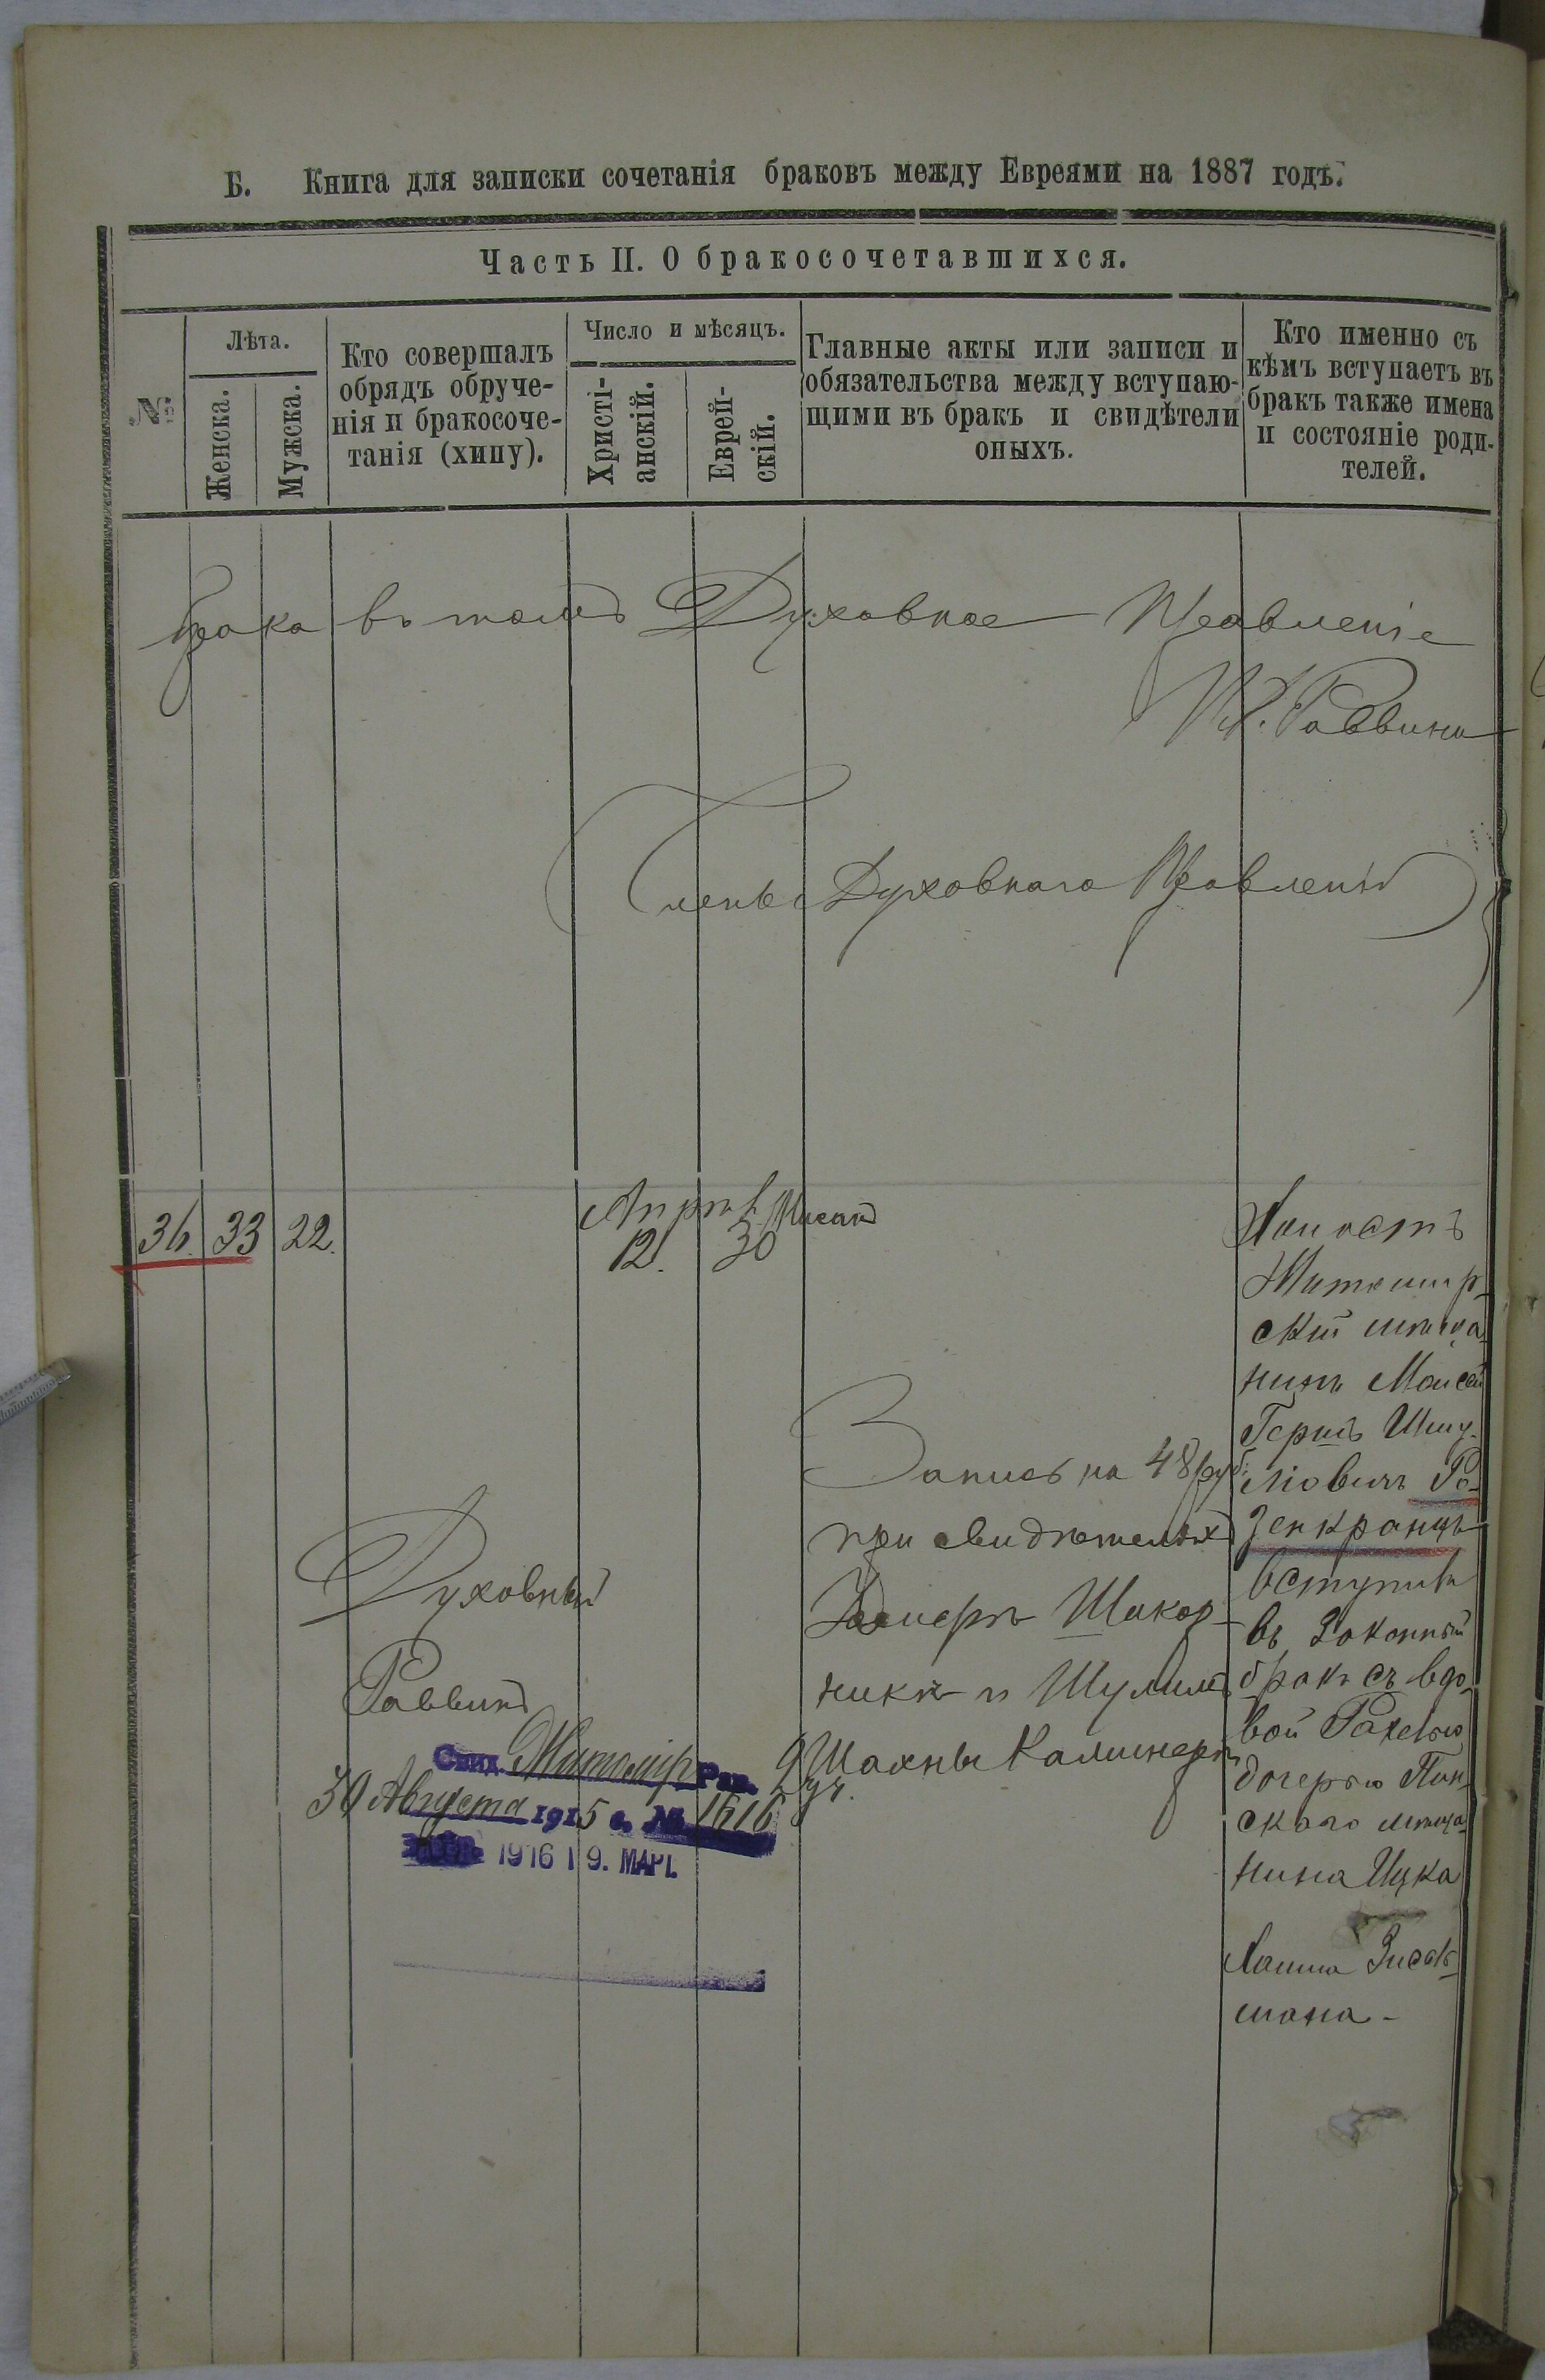 Б. Книга для записки сочетанія браковъ между Евреями на 1887 годъ.
Часть II. О бракосочетавшихся.
№
Лѣта.
Женска.
Мужска.
Кто совершалъ
обрядъ обруче-
нія и бракосоче-
танія (хипу).
Число и мѣсяцъ.
Христі-
анскій.
Еврей-
скій.
Главные акты или записи и
обязательства между вступаю-
щими въ бракъ и свидѣтели
оныхъ.
Кто именно съ
кѣмъ вступаетъ въ
бракъ также имена
и состояніе роди-
телей.
брака въ томъ Духовное Правленіе
Раввинъ
Члены Духовнаго Правленія
36. 33 22.
Апрѣль
12.
Нисанъ
30
Духовный
Раввинъ
Запись на 48 руб:
при свидѣтеляхъ
Шахны
Холостъ
Житомир-
скій мѣща-
нинъ Моисей
Гершъ Шму-
ліовичъ Ро-
зенкранцъ
вступилъ
въ Законный
бракъ съ вдо-
вой Рахелью
дочерью Пин-
скаго мѣща-
нина Ицка
Хаима Зисель-
мана -
Свид. Житомір Рав.
30 Августа 1915 г. № 1616
1916 19. МАР.